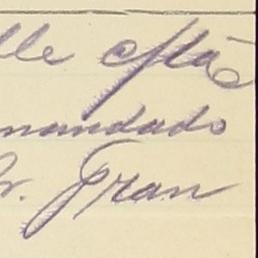 lle está
mandado
r. Gran